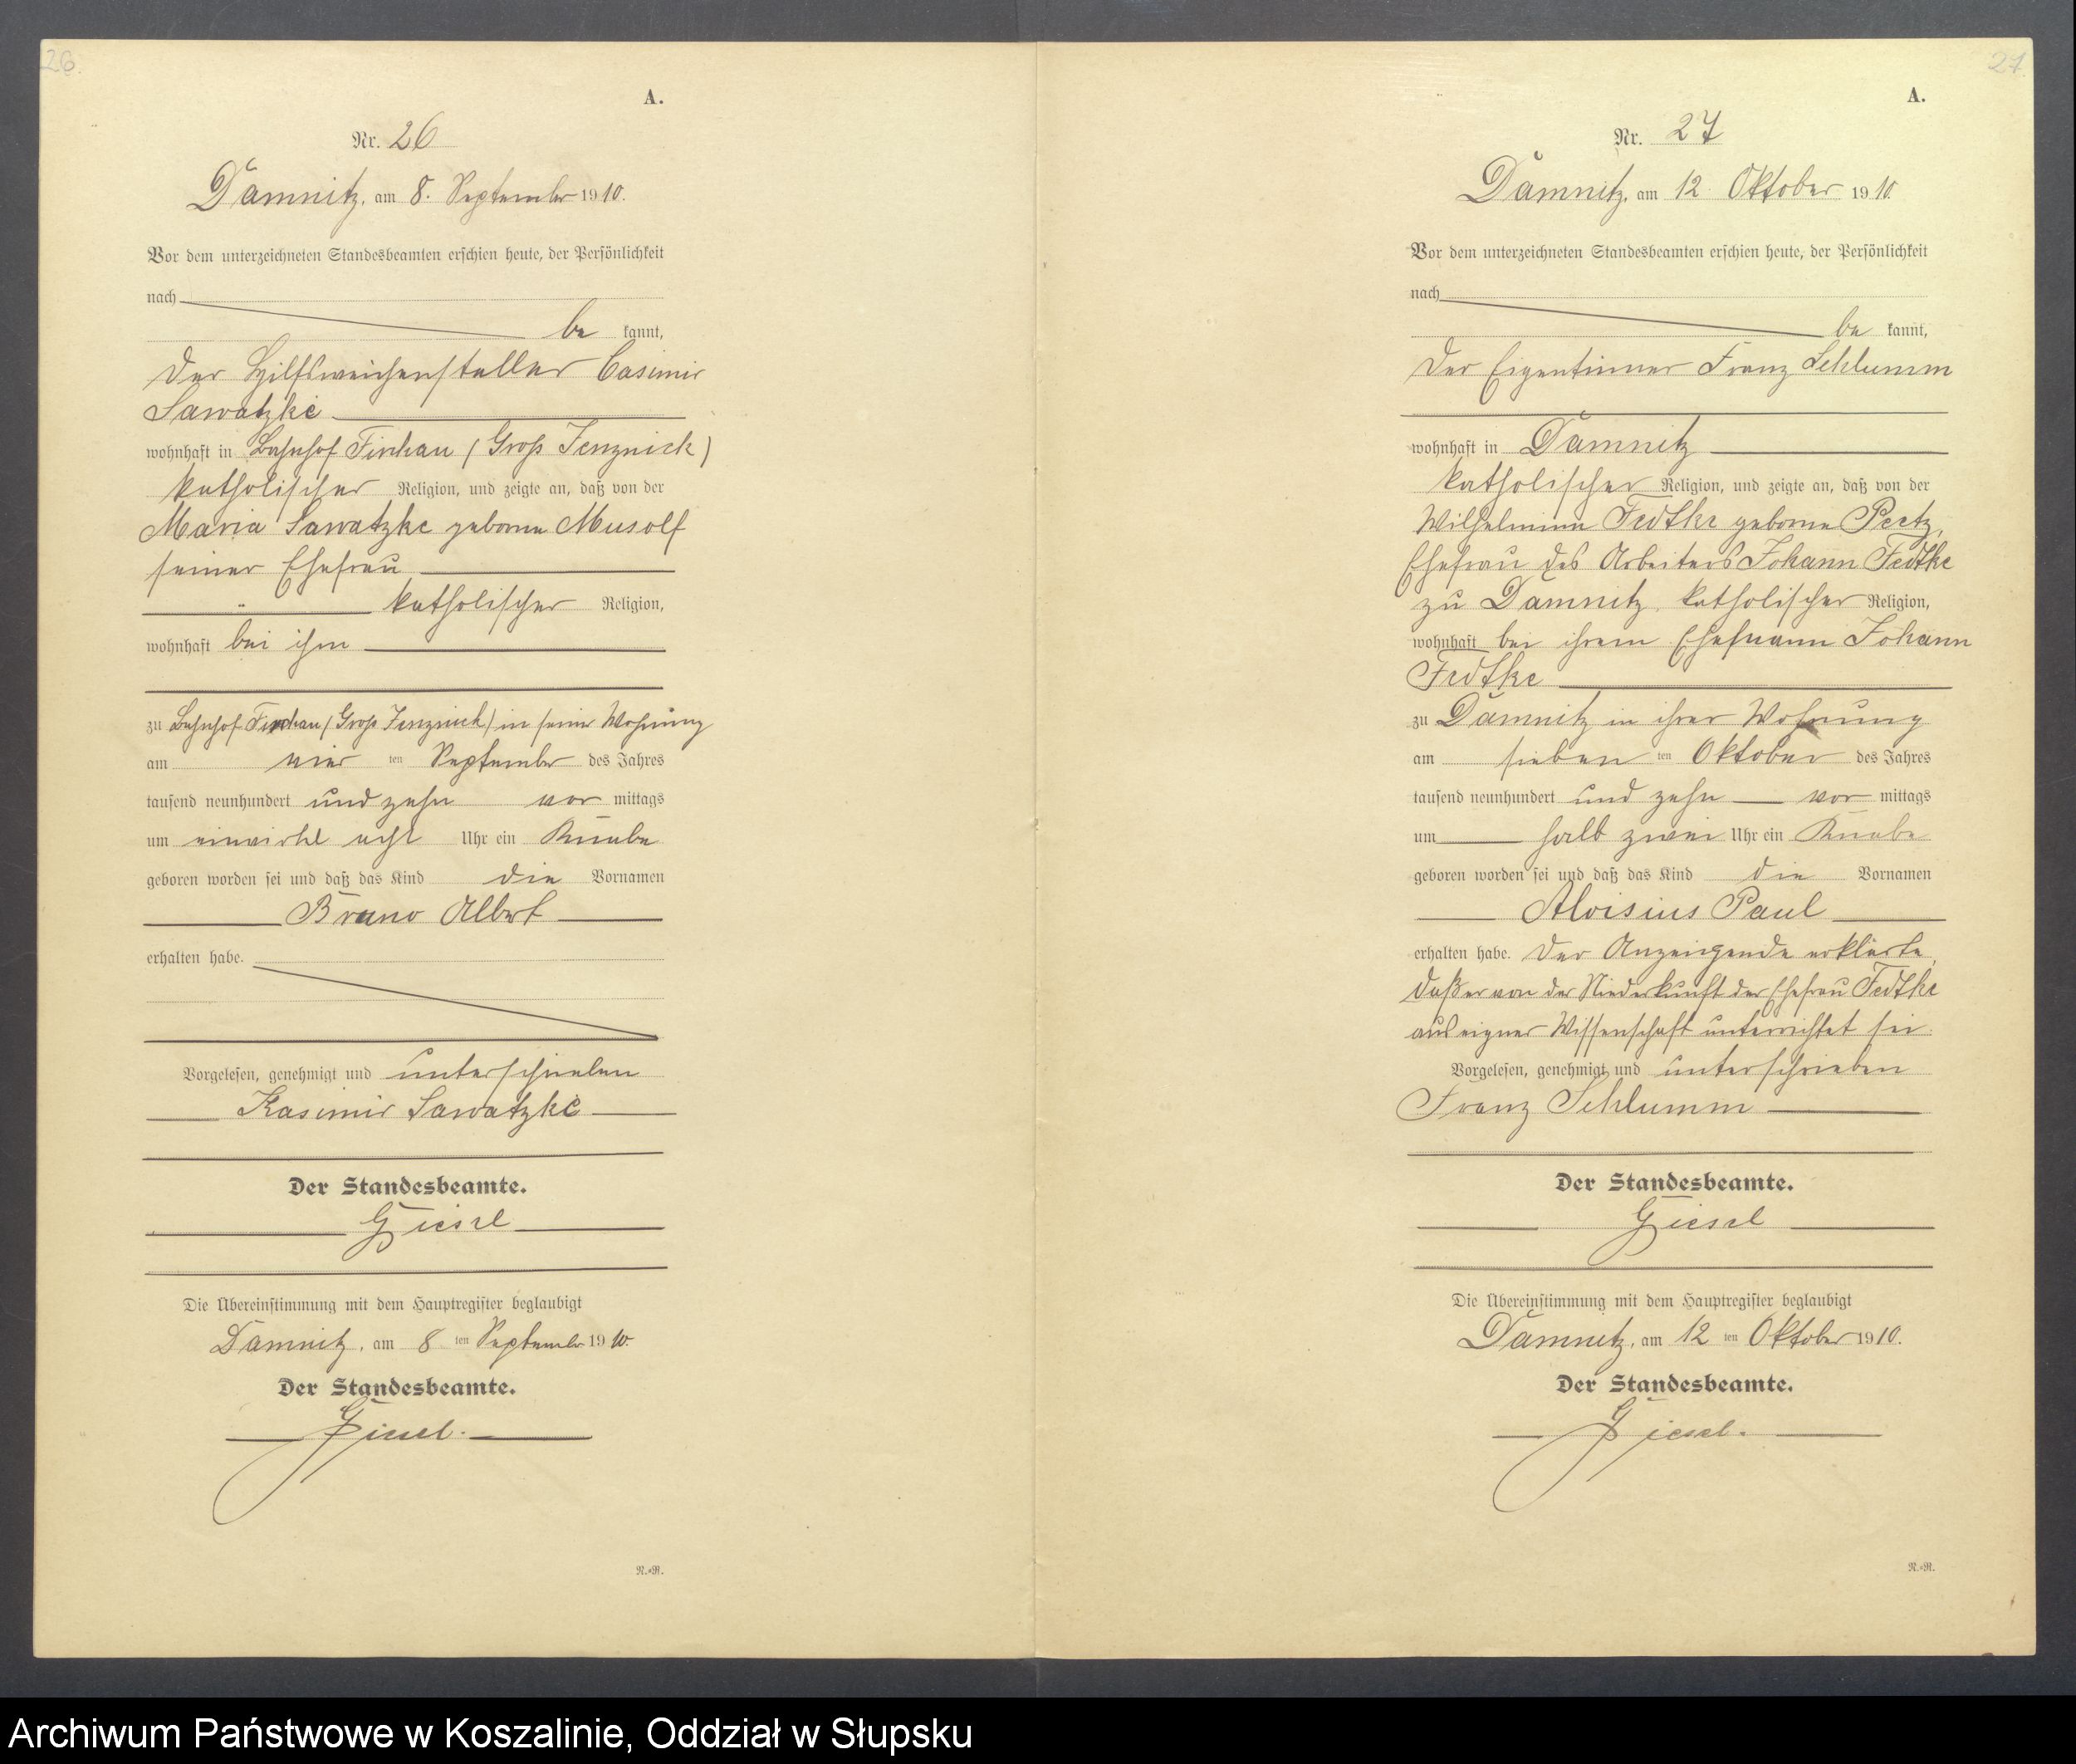 26.
A.
Nr. 26
Damnitz, am 8. September 1910.
Vor dem unterzeichneten Standesbeamten erschien heute, der Persönlichkeit
nach
be kannt,
der Hilfsweichensteller Casimir
Sawatzke
wohnhaft in Bahnhof Firchau (Groß Jenznick)
katholischer Religion, und zeigte an, daß von der
Maria Sawatzke geborne Musolf
seiner Ehefrau
katholischer Religion,
wohnhaft bei ihm
zu Bahnhof Firchau (Groß Jenznick) in seiner Wohnung
am vier ten September des Jahres
tausend neunhundert und zehn vor mittags
um einviertel acht Uhr ein Knabe
geboren worden sei und daß das Kind die Vornamen
Bruno Albert
erhalten habe.
Vorgelesen, genehmigt und unterschrieben
Kasimir Sawatzke
Der Standesbeamte.
Giesel
Die Übereinstimmung mit dem Hauptregister beglaubigt
Damnitz, am 8 ten September 1910.
Der Standesbeamte.
Giesel.
N.=R.
27.
A.
Nr. 27
Damnitz, am 12 Oktober 1910.
Vor dem unterzeichneten Standesbeamten erschien heute, der Persönlichkeit
nach
be kannt,
der Eigentümer Franz Schlumm
wohnhaft in Damnitz
katholischer Religion, und zeigte an, daß von der
Wilhelmine Fedtke geborne Peetz,
Ehefrau des Arbeiters Johann Fedtke
zu Damnitz, katholischer Religion,
wohnhaft bei ihrem Ehemann Johann
Fedtke
zu Damnitz in ihrer Wohnung
am sieben ten Oktober des Jahres
tausend neunhundert und zehn vor mittags
um halb zwei Uhr ein Knabe
geboren worden sei und daß das Kind die Vornamen
Aloisius Paul
erhalten habe. Der Anzeigende erklärte,
daß er von der Niederkunft der Ehefrau Fedtke
aus eigner Wissenschaft unterrichtet sei.
Vorgelesen, genehmigt und unterschrieben
Franz Schlumm
Der Standesbeamte.
Giesel
Die Übereinstimmung mit dem Hauptregister beglaubigt
Damnitz, am 12 ten Oktober 1910.
Der Standesbeamte.
Giesel.
N.=R.
Archiwum Państwowe w Koszalinie, Oddział w Słupsku